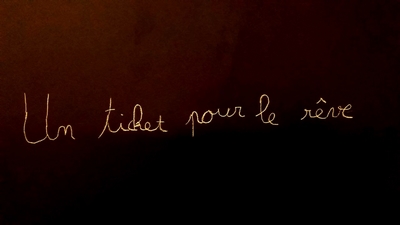 Un ticket pour le rêve